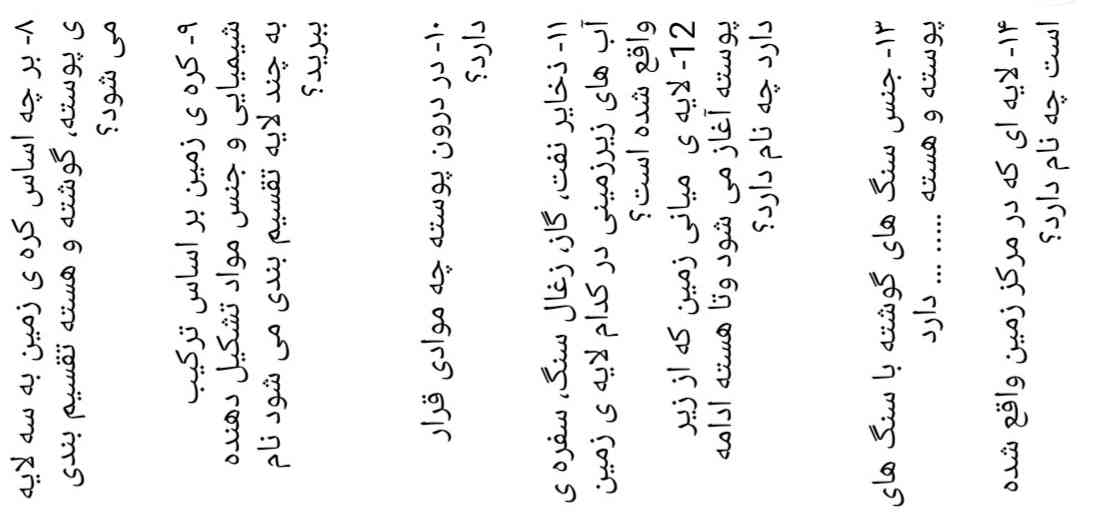 ۸- بر چه اساس کره ی زمین به سه لایه
ی پوسته، گوشته و هسته تقسیم بندی
می شود؟
۹- کره ی زمین بر اساس ترکیب
شیمیایی و جنس مواد تشکیل دهنده
به چند لایه تقسیم بندی می شود نام
ببرید؟
۱۰- در درون پوسته چه موادی قرار
دارد؟
۱۱- ذخایر نفت، گاز، زغال سنگ، سفره ی
آب های زیرزمینی در کدام لایه ی زمین
واقع شده است؟
12- لایه ی میانی زمین که از زیر
پوسته آغاز می شود وتا هسته ادامه
دارد چه نام دارد؟
۱۳- جنس سنگ های گوشته با سنگ های
پوسته و هسته ..... ... دارد
۱۴- لایه ای که در مرکز زمین واقع شده
است چه نام دارد؟